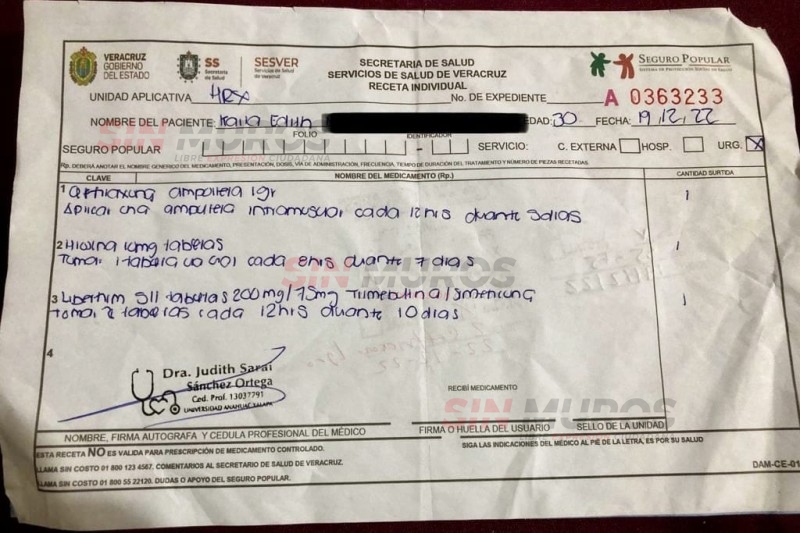 VERACRUZ
GOBIERNO
DEL ESTADO
SS
Secretaría
de Salud
SESVER
Servicios de Salud
de Veracruz
SECRETARIA DE SALUD
SERVICIOS DE SALUD DE VERACRUZ
RECETA INDIVIDUAL
SEGURO POPULAR
UNIDAD APLICATIVA
No. DE EXPEDIENTE A 0363233
NOMBRE DEL PACIENTE: Karla Edith EDAD: 30 FECHA: 19/12/22
FOLIO IDENTIFICADOR
SEGURO POPULAR SERVICIO: C. EXTERNA HOSP. URG. X
Rp. DEBERÁ ANOTAR EL NOMBRE GENÉRICO DEL MEDICAMENTO, PRESENTACIÓN, DOSIS, VÍA DE ADMINISTRACIÓN, FRECUENCIA, TIEMPO DE DURACIÓN DEL TRATAMIENTO Y NÚMERO DE PIEZAS RECETADAS.
CLAVE NOMBRE DEL MEDICAMENTO (Rp.) CANTIDAD SURTIDA
1 ampulleta 1gr 1
Aplicar una ampulleta intramuscular cada 12hrs durante 5 dias
2 10mg tabletas 1
Tomar 1 tableta vo cada 8hrs durante 7 dias
3 Libertrim SII tabletas 200mg/75mg Trimebutina/simeticona 1
Tomar tabletas cada 12hrs durante 10 dias
4
Dra. Judith Sarai
Sánchez Ortega
Ced. Prof. 13037791
UNIVERSIDAD ANAHUAC XALAPA
RECIBÍ MEDICAMENTO
NOMBRE, FIRMA AUTOGRAFA Y CEDULA PROFESIONAL DEL MÉDICO
FIRMA O HUELLA DEL USUARIO
SELLO DE LA UNIDAD
ESTA RECETA NO ES VALIDA PARA PRESCRIPCIÓN DE MEDICAMENTO CONTROLADO.
SIGA LAS INDICACIONES DEL MÉDICO AL PIE DE LA LETRA, ES POR SU SALUD
LLAMA SIN COSTO 01 800 123 4567. COMENTARIOS AL SECRETARIO DE SALUD DE VERACRUZ.
LLAMA SIN COSTO 01 800 55 22120. DUDAS O APOYO DEL SEGURO POPULAR.
DAM-CE-01
SIN MUROS
LIBRE EXPRESIÓN CIUDADANA
SIN MUROS
SIN MUROS